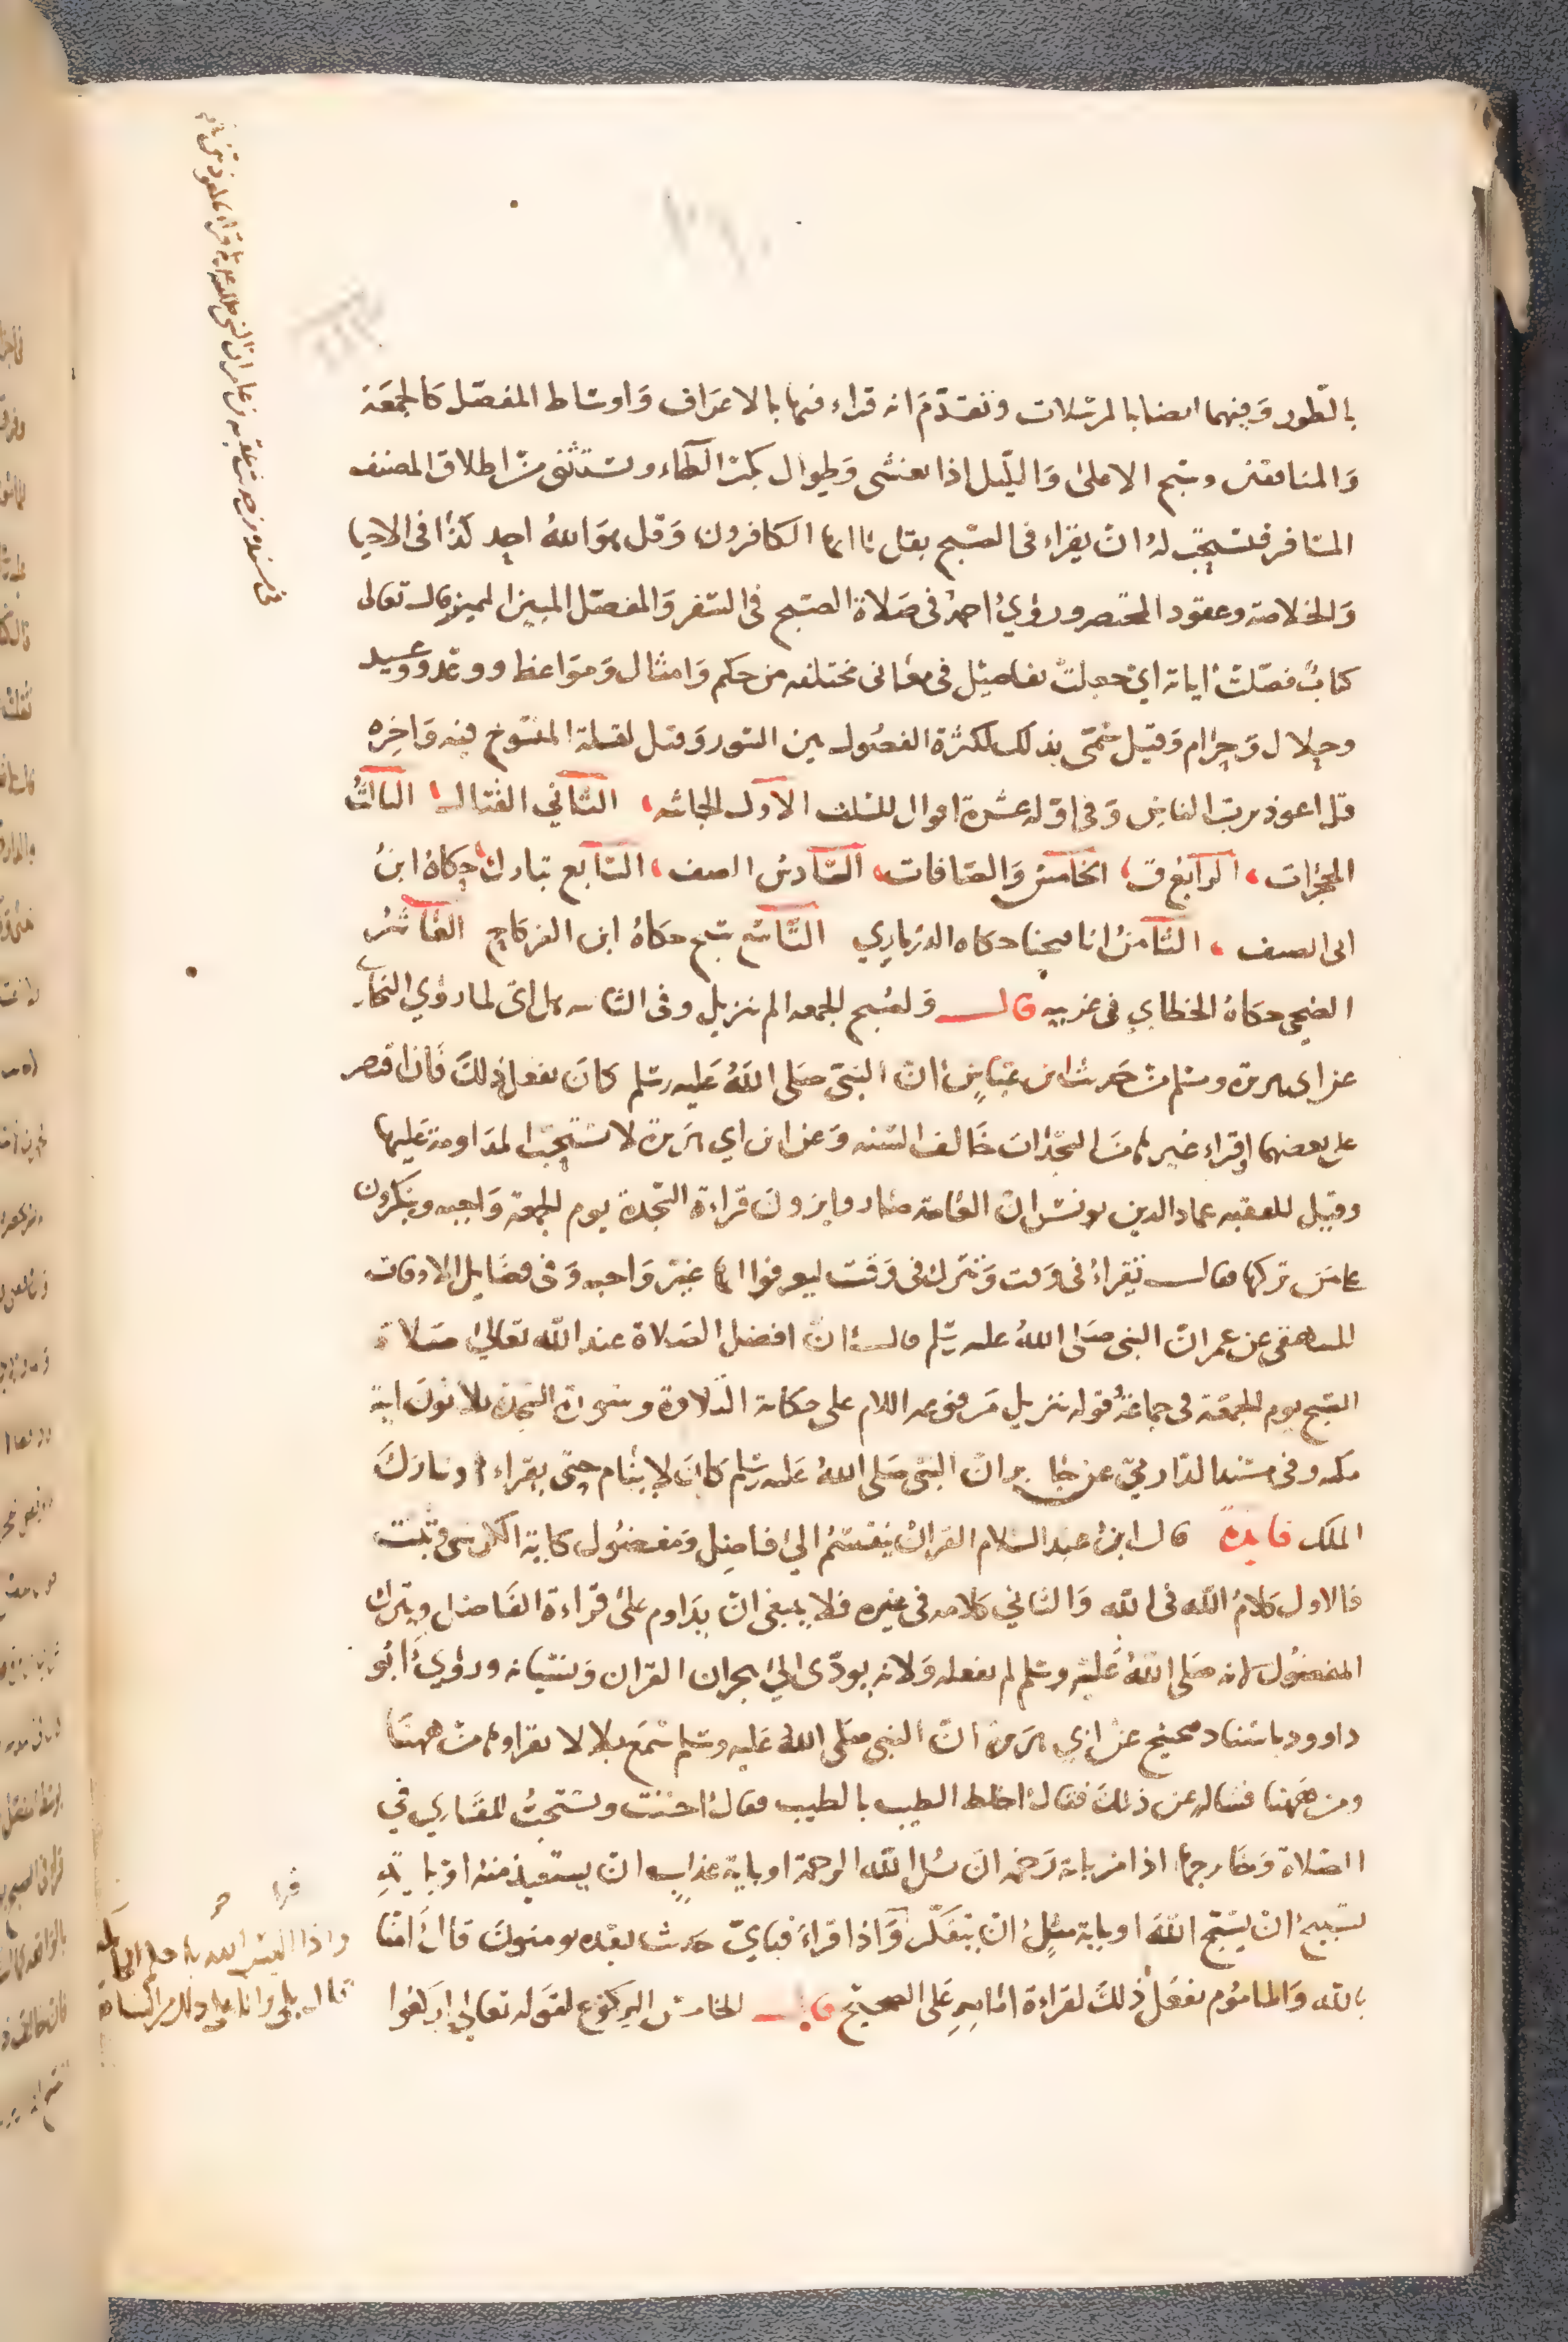 بالطور وفيهما ايضا بالمرسلات وتقدم انه قراء فيها بالاعراف واوساط المفصل كالجمعة
والمنافقين وسبح الاعلى والليل اذا يغشى وطوال بكسر الطاء ويستثنى من اطلاق المصنف
المسافر فيستحب له ان يقراء في الصبح بقل يا ايها الكافرون وقل هو الله احد كذا في الاحيا
والخلاصة وعقود المختصر وروي احمد في صلاة الصبح في السفر والمفصل المبين المميز قال تعالى
كتاب فصلت اياته اي جعلت تفاصيل في معاني مختلفه من حكم وامثال ومواعظ ووعد ووعيد
وحلال وحرام وقيل سمى بذلك لكثرة الفصول بين السور وقيل لقلة المنسوخ فيه واخره
قل اعوذ برب الناس وفي اوله عشرة اقوال للسلف الاول الجاثيه الثاني القتال الثالث
الحجرات الرابع ق الخامس والصافات السادس الصف السابع تبارك حكاه ابن
ابي الصيف الثامن انا فتحنا حكاه الدزماري التاسع سبح حكاه ابن الفركاح العاشر
الضحى حكاه الخطابي في غريبه قال ولصبح الجمعه الم تنزيل وفي الثانيه هل اتى لما روي البخاري
عن ابي هريرة ومسلم من حديث ابن عباس ان النبي صلى الله عليه وسلم كان يفعل ذلك فان اقتصر
على بعضهما او قراء غيرهما من السجدات خالف السنه وعن ابن ابي هريرة لا تستحب المداومة عليها
وقيل للفقيه عماد الدين يونس ان العامة صاروا يرون قراءة السجدة يوم الجمعة واجبه وينكرون
على من تركها فقال تقراء في وقت وتترك في وقت ليعرفوا انها غير واجبه وفي فضايل الاوقات
للبيهقي عن عمر ان النبي صلى الله عليه سلم قال ان افضل الصلاة عند الله تعالى صلاة
الصبح يوم الجمعة في جماعة قوله تنزيل مرفوعه اللام على حكاية التلاوة وسورة السجدة ثلاثون اية
مكيه وفي مسند الدارمي عن جابر ان النبي صلى الله عليه وسلم كان لا ينام حتى يقراءها وتبارك
الملك فايدة قال ابن عبد السلام القران ينقسم الى فاضل ومفضول كاية الكرسي وتبت
فالاول كلام الله في الله والثاني كلامه في غيره فلا ينبغي ان يداوم على قراءة الفاضل ويترك
المفضول لانه صلى الله عليه وسلم لم يفعله ولانه يودي الى هجران القران ونسيانه وروي ابو
داوود باسناد صحيح عن ابي هريرة ان النبي صلى الله عليه وسلم سمع بلالا يقراء من ههنا
ومن ههنا فساله عن ذلك فقال اخلط الطيب بالطيب فقال احسنت ويستحب للقاري في
الصلاة وخارجها اذا مر باية رحمه ان يسل الله الرحمة او باية عذاب ان يستعيذ منه او باية
تسبيح ان يسبح الله او باية مثل ان يتفكر واذا قراء فباي حديث بعده يومنون قال امنا
بالله والماموم يفعل ذلك لقراءة امامه على الصحيح قال الخامس الركوع لقوله تعالى اركعوا
واذا اليس الله باحكم الحاكمين
قال بلى وانا على ذلك من الشاهدين